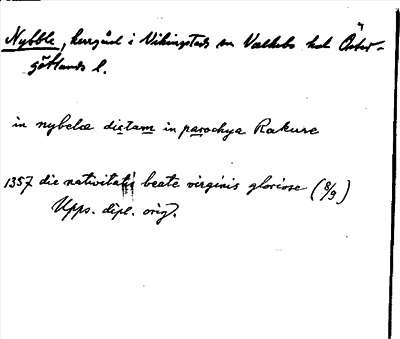 Nybble, herrgård i Vikingstads sn Valkebo hd Öster-
götlands l.
in nybelæ dictam in parochya Rakure
1357 die nativitatis beate virginis gloriose (8/9)
Upps. dipl. orig.